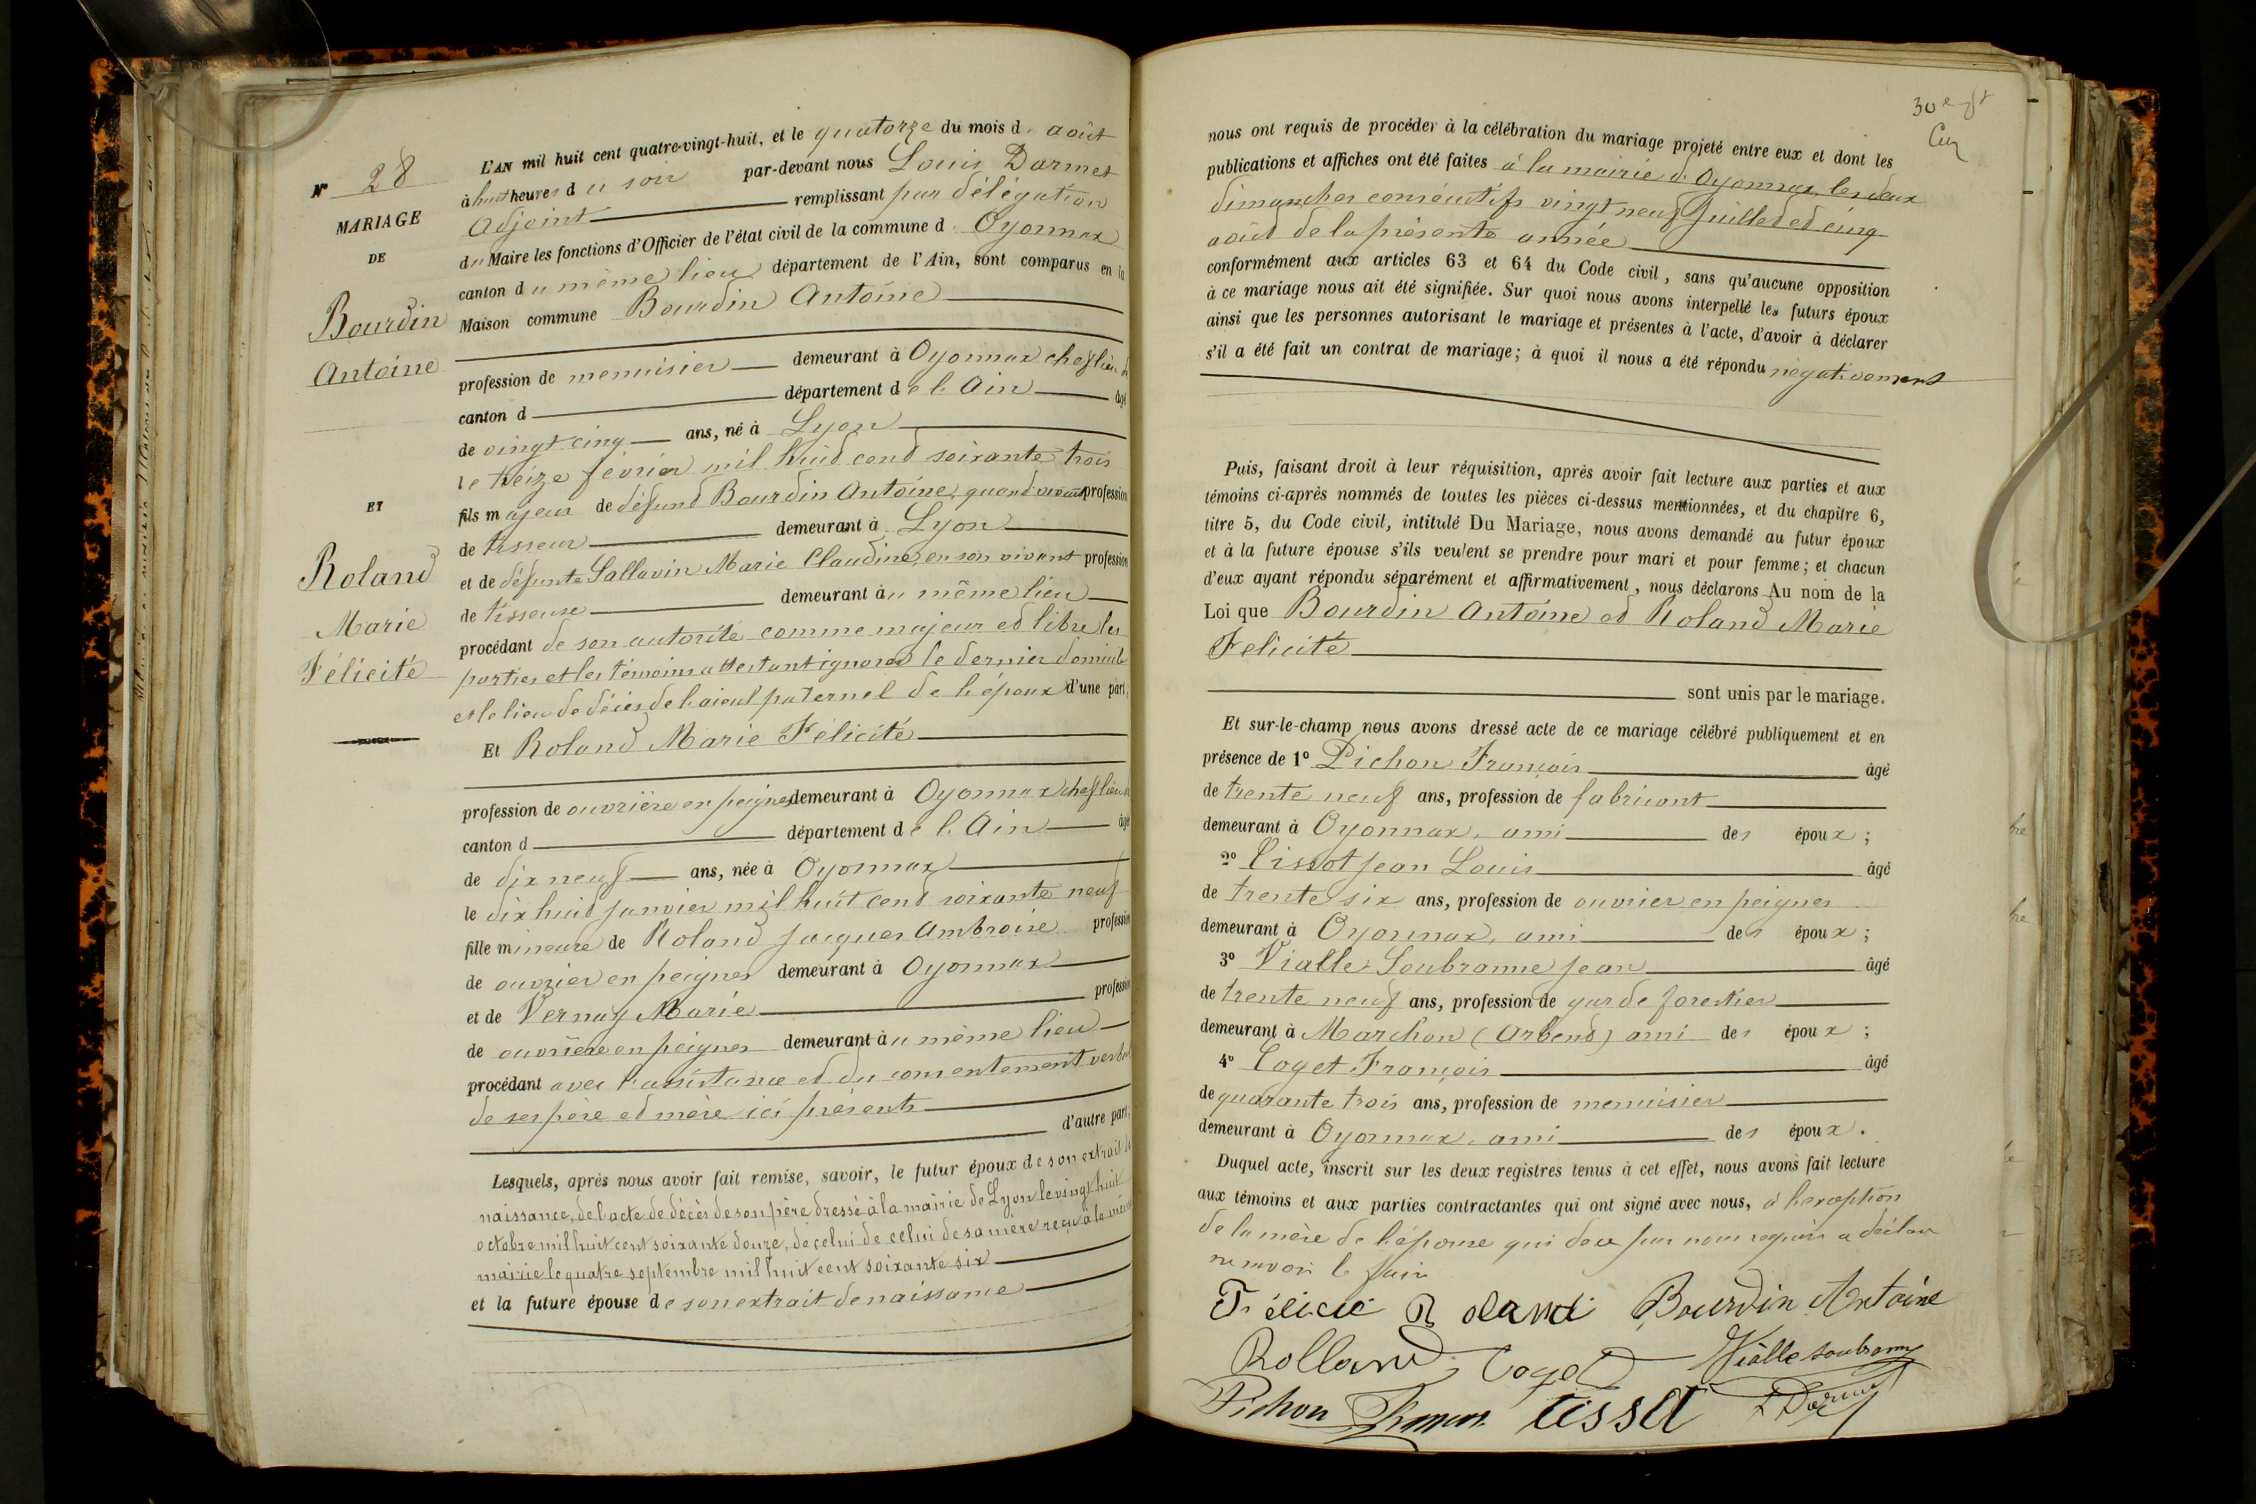 N° 28
MARIAGE
DE
Bourdin
Antoine
ET
Roland
Marie
Félicité
L'AN mil huit cent quatre-vingt-huit, et le quatorze du mois d' août
à huit heures du soir par-devant nous Louis Darmet
Adjoint remplissant par délégation
du Maire les fonctions d'Officier de l'état civil de la commune d' Oyonnax
canton du même lieu département de l'Ain, sont comparus en la
Maison commune Bourdin Antoine
profession de menuisier demeurant à Oyonnax chef lieu de
canton d département de l'Ain âgé
de vingt cinq ans, né à Lyon
le treize février mil huit cent soixante trois
fils majeur de défunt Bourdin Antoine, quand vivait profession
de tisseur demeurant à Lyon
et de défunte Sallavin Marie Claudine, en son vivant profession
de tisseuse demeurant au même lieu
procédant de son autorité comme majeur et libre les
parties et les témoins attestant ignorer le dernier domicile
et le lieu de décès de l'aieul paternel de l'époux d'une part,
Et Roland Marie Félicité
profession de ouvrière en peignes demeurant à Oyonnax chef lieu de
canton d département de l'Ain âgée
de dix neuf ans, née à Oyonnax
le dix huit janvier mil huit cent soixante neuf
fille mineure de Roland Jacques Ambroise profession
de ouvrier en peignes demeurant à Oyonnax
et de Vernay Marie profession
de ouvrière en peignes demeurant au même lieu
procédant avec l'assistance et du consentement verbal
de ses père et mère ici présents
d'autre part,
Lesquels, après nous avoir fait remise, savoir, le futur époux de son extrait de
naissance, de l'acte de décès de son père dressé à la mairie de Lyon le vingt huit
octobre mil huit cent soixante douze, de celui de celui de sa mère reçu à la même
mairie le quatre septembre mil huit cent soixante six
et la future épouse de son extrait de naissance
nous ont requis de procéder à la célébration du mariage projeté entre eux et dont les
publications et affiches ont été faites à la mairie d'Oyonnax les deux
dimanches consécutifs vingt neuf juillet et cinq
août de la présente année
conformément aux articles 63 et 64 du Code civil, sans qu'aucune opposition
à ce mariage nous ait été signifiée. Sur quoi nous avons interpellé les futurs époux
ainsi que les personnes autorisant le mariage et présentes à l'acte, d'avoir à déclarer
s'il a été fait un contrat de mariage; à quoi il nous a été répondu négativement
Puis, faisant droit à leur réquisition, après avoir fait lecture aux parties et aux
témoins ci-après nommés de toutes les pièces ci-dessus mentionnées, et du chapitre 6,
titre 5, du Code civil, intitulé Du Mariage, nous avons demandé au futur époux
et à la future épouse s'ils veulent se prendre pour mari et pour femme; et chacun
d'eux ayant répondu séparément et affirmativement, nous déclarons Au nom de la
Loi que Bourdin Antoine et Roland Marie
Félicité
sont unis par le mariage.
Et sur-le-champ nous avons dressé acte de ce mariage célébré publiquement et en
présence de 1° Pichon François âgé
de trente neuf ans, profession de fabricant
demeurant à Oyonnax, ami des époux;
2° Tissot Jean Louis âgé
de trente six ans, profession de ouvrier en peignes
demeurant à Oyonnax, ami des époux;
3° Vialle-Soubranne Jean âgé
de trente neuf ans, profession de garde forestier
demeurant à Marchon (Arbent) ami des époux;
4° Coget François âgé
de quarante trois ans, profession de menuisier
demeurant à Oyonnax, ami des époux.
Duquel acte, inscrit sur les deux registres tenus à cet effet, nous avons fait lecture
aux témoins et aux parties contractantes qui ont signé avec nous, à l'exception
de la mère de l'épouse qui de ce par nous requise a déclaré
ne savoir le faire
Félicie Roland Bourdin Antoine
Rolland Coget Vialle Soubranne
Pichon François tissot L Darmet